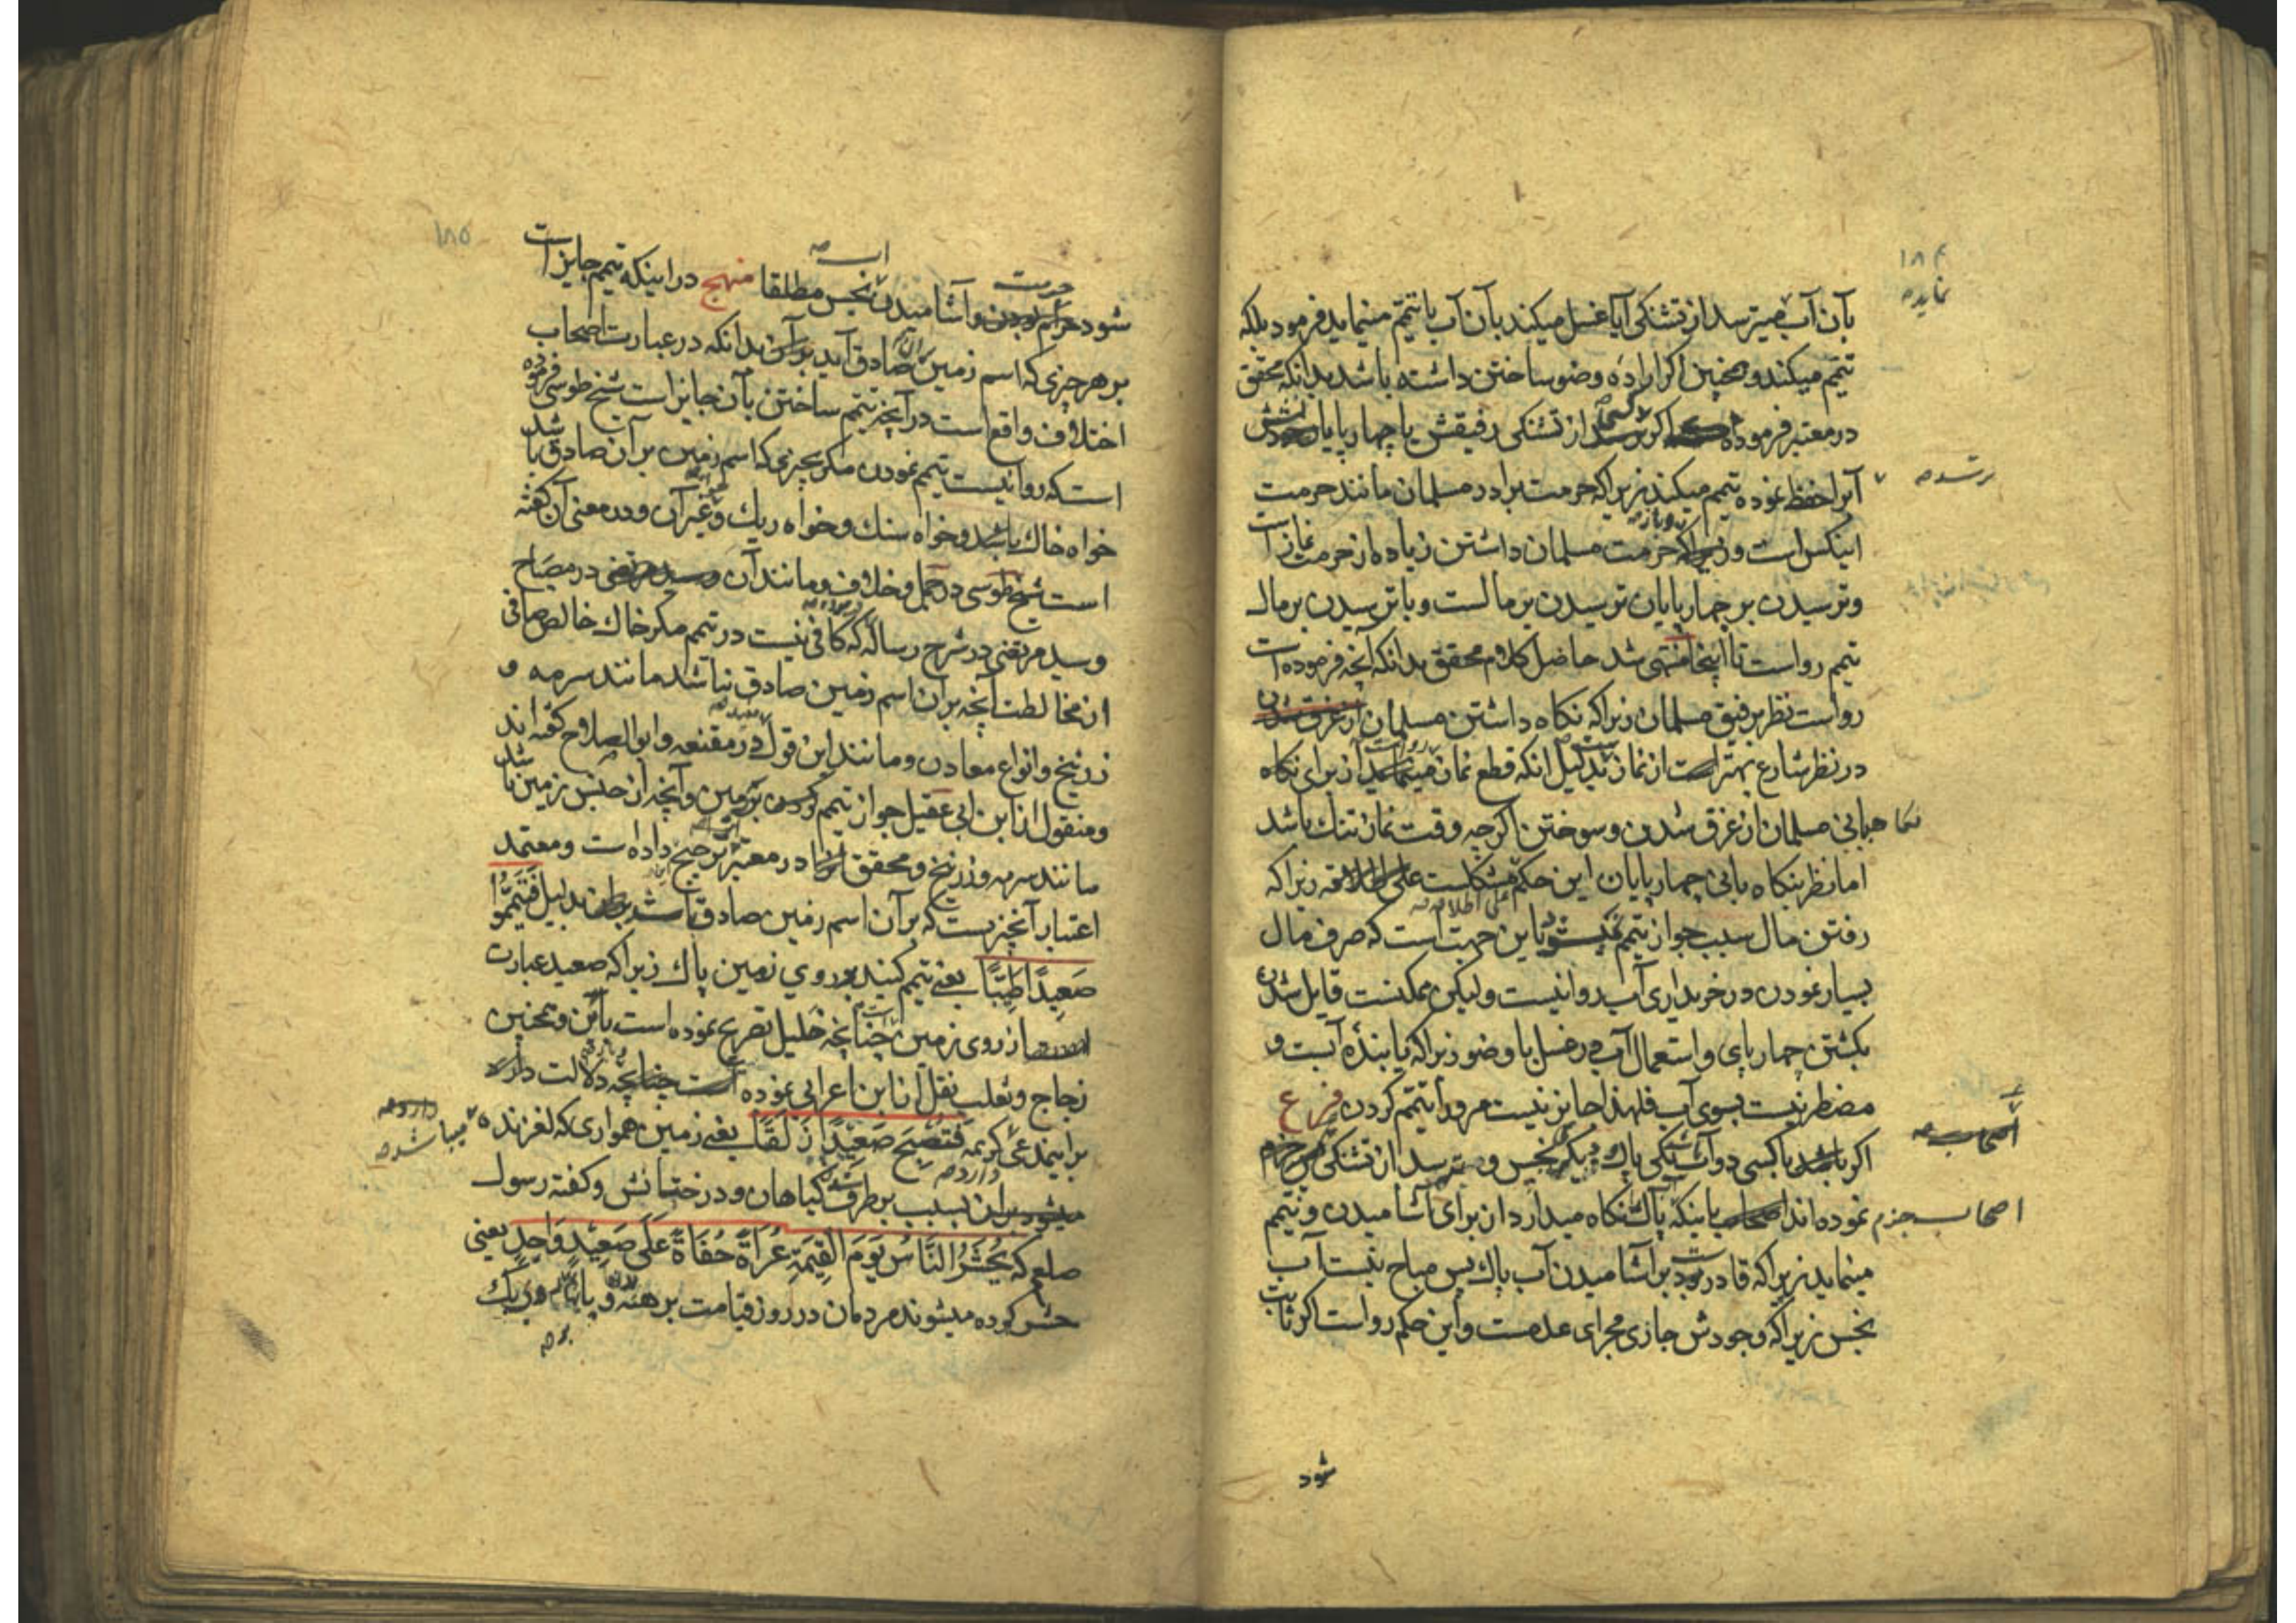 ۱۸۴
نماید
بآن آب میترسد از تشنکی آیا غسل میکند بآن آب یا تیمم مینماید فرمود بلکه
تیمم میکند و همچنین اکر اراده وضو ساختن داشته باشد بدانکه محقق
در معتبر فرموده اکر کسی از تشنکی رفیقش یا چهارپایان
ترسد
آبرا حفظ نموده تیمم میکند زیراکه حرمت برادر مسلمان مانند حرمت
اینکس است و حرمت مسلمان داشتن زیاده از حرمت نماز است
و ترسیدن بر چهارپایان ترسیدن بر مالست و با ترسیدن بر مال
تیمم رواست تا اینجا منتهی شد حاصل کلام محقق بدانکه آنچه فرموده است
رواست نظر برفیق مسلمان زیراکه نکاه داشتن مسلمان از غرق شدن
در نظر شارع بهتر است از نماز بدلیل انکه قطع نماز از برای نکاه
هبانی مسلمان از غرق شدن و سوختن اکرچه وقت نماز تنک باشد
اما نظر بنکاه بانی چهارپایان این حکم مشکلست علی اطلاقه زیراکه
رفتن مال سبب جواز تیمم باین جهت است که صرف مال
بسیار نمودن در خریداری آب روا نیست ولیکن ممکنست قایل شدن
بکشتن چهارپای و استعمال آب در غسل یا وضو زیراکه یابنده آبست و
مضطر نیست بسوی آب فلهذا جایز نیست مر او را تیمم کردن فرع
اکر باشد با کسی دو آب یکی پاک و دیکر نجس و بترسد از تشنکی
اصحاب جزم نموده اند باینکه پاک نکاه میدارد از برای آشامیدن و تیمم
مینماید زیراکه قادر بود بر آشامیدن آب پاک پس مباح نیست آب
نجس زیراکه وجودش جاری مجرای عدمست و این حکم رواست اکر ثابت
شود
۱۸۵
شود حرمت آشامیدن آب نجس مطلقا منهج در اینکه تیمم جایز است
بر هر چیزی که اسم زمین بر آن صادق آید بدانکه در عبارت اصحاب
اختلاف واقع است در آنچه تیمم ساختن بآن جایز است شیخ طوسی فرموده
است که روا نیست تیمم نمودن مکر بچیزی که اسم زمین بر آن صادق باشد
خواه خاک باشد و خواه سنک و خواه ریک و غیر آن و در معنی آن کفته
است شیخ طوسی در جمل و خلاف و مانند آن و سید مرتضی در مصباح
و سید مرتضی در شرح رساله که کافی نیست در تیمم مکر خاک خالص صافی
از مخالطت آنچه بر آن اسم زمین صادق نباشد مانند سرمه و
زرنیخ و انواع معادن و مانند این قول در مقنعه و ابوالصلاح کفته اند
و منقول از ابن ابی عقیل جواز تیمم کردن بزمین و آنچه از جنس زمین باشد
مانند سرمه و زرنیخ و محقق در معتبر ترجیح داده است و معتمد
اعتبار آنچیزیست که بر آن اسم زمین صادق باشد بدلیل فَتَیَمَّمُوا
صَعِیدًا طَیِّبًا یعنی تیمم کنید بر روی زمین پاک زیراکه صعید عبارت
از روی زمین است چنانچه خلیل تصریح نموده است بآن و همچنین
زجاج و ثعلب نقل آن از ابن اعرابی نموده چنانچه دلالت دارد
بر اینمدعی کریمه فَتُصْبِحَ صَعِیْدًا زَلَقًا یعنی زمین همواری که لغزنده میباشد
بسبب بر طرف شدن کیاهان و درختانش و کفته رسول
صلعم که یُحْشَرُ النَّاسُ یَوْمَ الْقِیٰمَةِ عُرَاةً حُفَاةً عَلَی صَعِیْدٍ وَاحِدٍ یعنی
حشر کرده میشوند مردمان در روز قیامت برهنه و پا